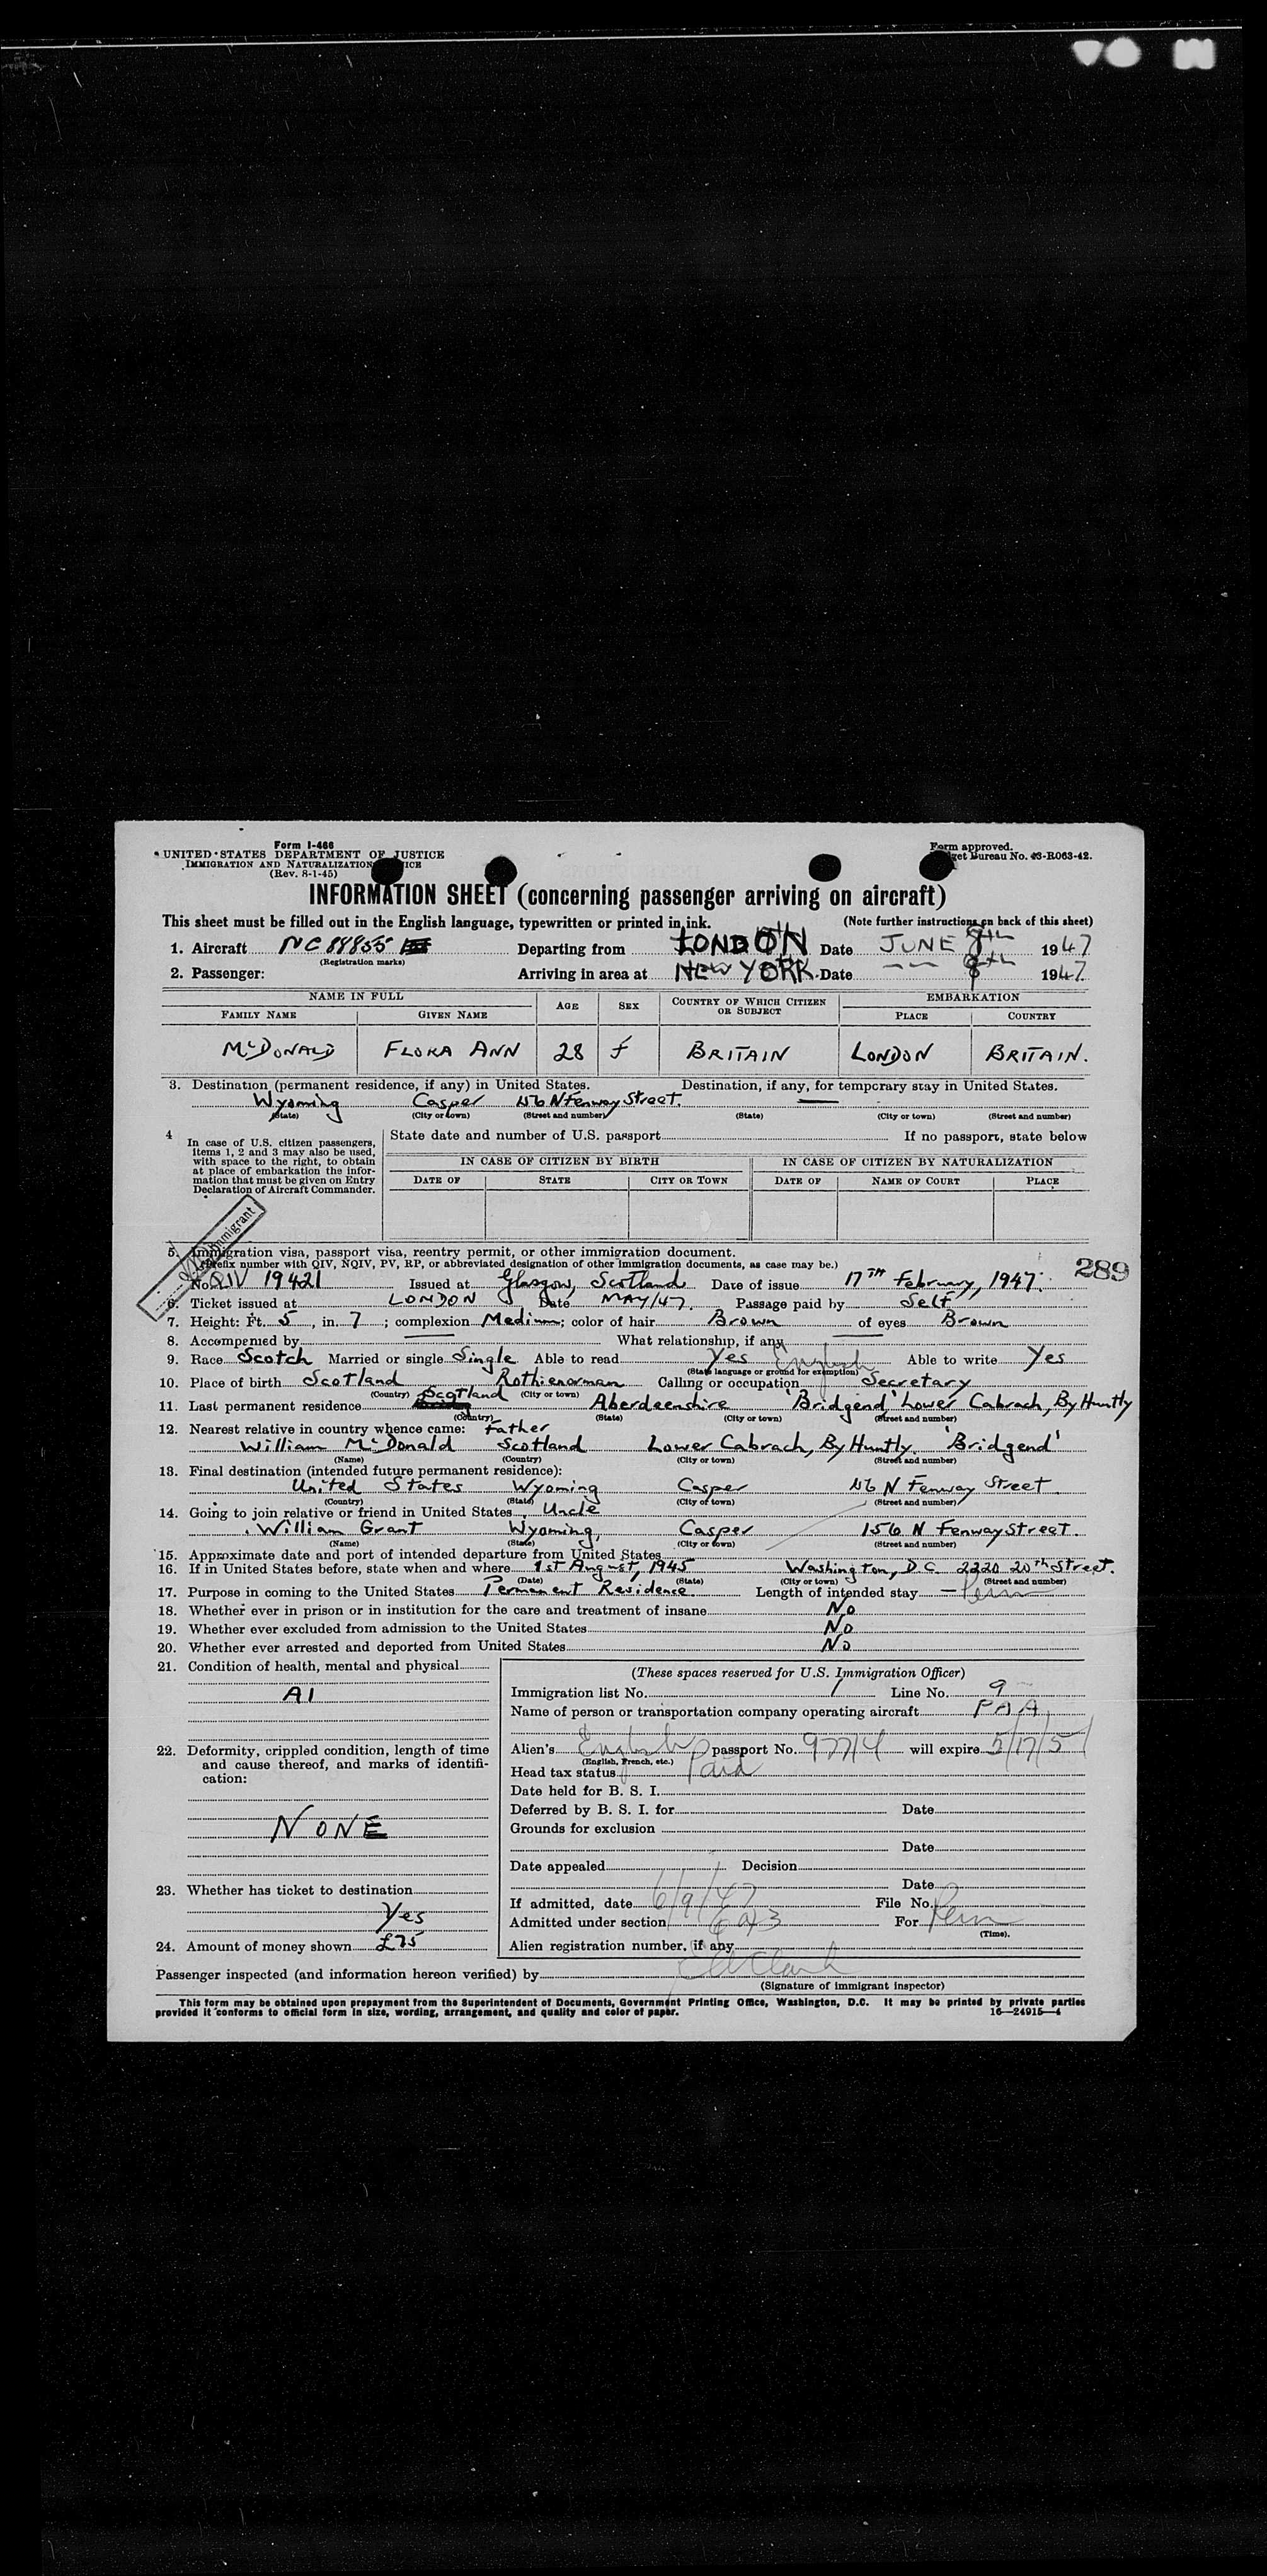 Form I-466
UNITED STATES DEPARTMENT OF JUSTICE
IMMIGRATION AND NATURALIZATION
(Rev. 8-1-45)
Form approved.
Bureau No. 43-R063-42.
INFORMATION SHEET (concerning passenger arriving on aircraft)
This sheet must be filled out in the English language, typewritten or printed in ink. (Note further instructions on back of this sheet)
1. Aircraft NC 88855 Departing from LONDON Date JUNE 8th 1947
(Registration marks)
2. Passenger: Arriving in area at NEW YORK Date 1947
NAME IN FULL AGE SEX COUNTRY OF WHICH CITIZEN OR SUBJECT EMBARKATION
FAMILY NAME GIVEN NAME PLACE COUNTRY
McDONALD FLORA ANN 28 f BRITAIN LONDON BRITAIN.
3. Destination (permanent residence, if any) in United States. Destination, if any, for temporary stay in United States.
Wyoming Casper N Fenway Street. —
(State) (City or town) (Street and number) (State) (City or town) (Street and number)
4 In case of U.S. citizen passengers, items 1, 2 and 3 may also be used, with space to the right, to obtain at place of embarkation the information that must be given on Entry Declaration of Aircraft Commander.
State date and number of U.S. passport If no passport, state below
IN CASE OF CITIZEN BY BIRTH IN CASE OF CITIZEN BY NATURALIZATION
DATE OF STATE CITY OR TOWN DATE OF NAME OF COURT PLACE
Immigrant
5. Immigration visa, passport visa, reentry permit, or other immigration document.
(Prefix number with QIV, NQIV, PV, RP, or abbreviated designation of other immigration documents, as case may be.)
289
No. QIV 19421 Issued at Glasgow, Scotland Date of issue 17TH February, 1947.
6. Ticket issued at LONDON Date MAY/47. Passage paid by Self
7. Height: Ft. 5, in. 7; complexion Medium; color of hair Brown of eyes Brown
8. Accompanied by — What relationship, if any —
9. Race Scotch Married or single Single Able to read Yes English Able to write Yes
(State language or ground for exemption)
10. Place of birth Scotland Rothienorman Calling or occupation Secretary
(Country) (City or town)
11. Last permanent residence Scotland Aberdeenshire 'Bridgend' Lower Cabrach, By Huntly
(Country) (State) (City or town) (Street and number)
12. Nearest relative in country whence came: Father
William McDonald Scotland Lower Cabrach, By Huntly. 'Bridgend'
(Name) (Country) (City or town) (Street and number)
13. Final destination (intended future permanent residence):
United States Wyoming Casper N Fenway Street
(Country) (State) (City or town) (Street and number)
14. Going to join relative or friend in United States Uncle
William Grant Wyoming, Casper 156 N Fenway Street.
(Name) (State) (City or town) (Street and number)
15. Approximate date and port of intended departure from United States
16. If in United States before, state when and where 1st August, 1945 Washington, D C. 2220 20th Street.
(Date) (State) (City or town) (Street and number)
17. Purpose in coming to the United States Permanent Residence Length of intended stay — Perm
18. Whether ever in prison or in institution for the care and treatment of insane No
19. Whether ever excluded from admission to the United States No
20. Whether ever arrested and deported from United States No
21. Condition of health, mental and physical
A1
22. Deformity, crippled condition, length of time and cause thereof, and marks of identification:
NONE
23. Whether has ticket to destination
Yes
24. Amount of money shown £75
(These spaces reserved for U.S. Immigration Officer)
Immigration list No. 1 Line No. 9
Name of person or transportation company operating aircraft PAA
Alien's English passport No. 97714 will expire 5/17/51
(English, French, etc.)
Head tax status Paid
Date held for B. S. I.
Deferred by B. S. I. for Date
Grounds for exclusion
Date
Date appealed Decision
Date
If admitted, date 6/9/47 File No.
Admitted under section 6 a 3 For Perm
(Time).
Alien registration number, if any
Passenger inspected (and information hereon verified) by Clark
(Signature of immigrant inspector)
This form may be obtained upon prepayment from the Superintendent of Documents, Government Printing Office, Washington, D.C. It may be printed by private parties
provided it conforms to official form in size, wording, arrangement, and quality and color of paper. 16—24915-4